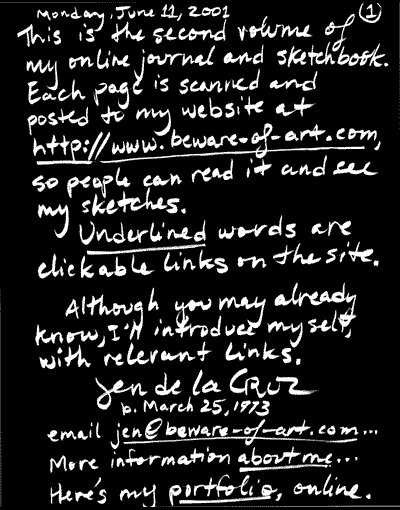 Monday, June 11, 2001 1
This is the second volume of
my online journal and sketchbook.
Each page is scanned and
posted to my website at
http://www.beware-of-art.com,
so people can read it and see
my sketches.
Underlined words are
clickable links on the site.
Although you may already
know, I'll introduce myself,
with relevant links.
Jen de la Cruz
b. March 25, 1973
email jen@beware-of-art.com...
More information about me...
Here's my portfolio, online.